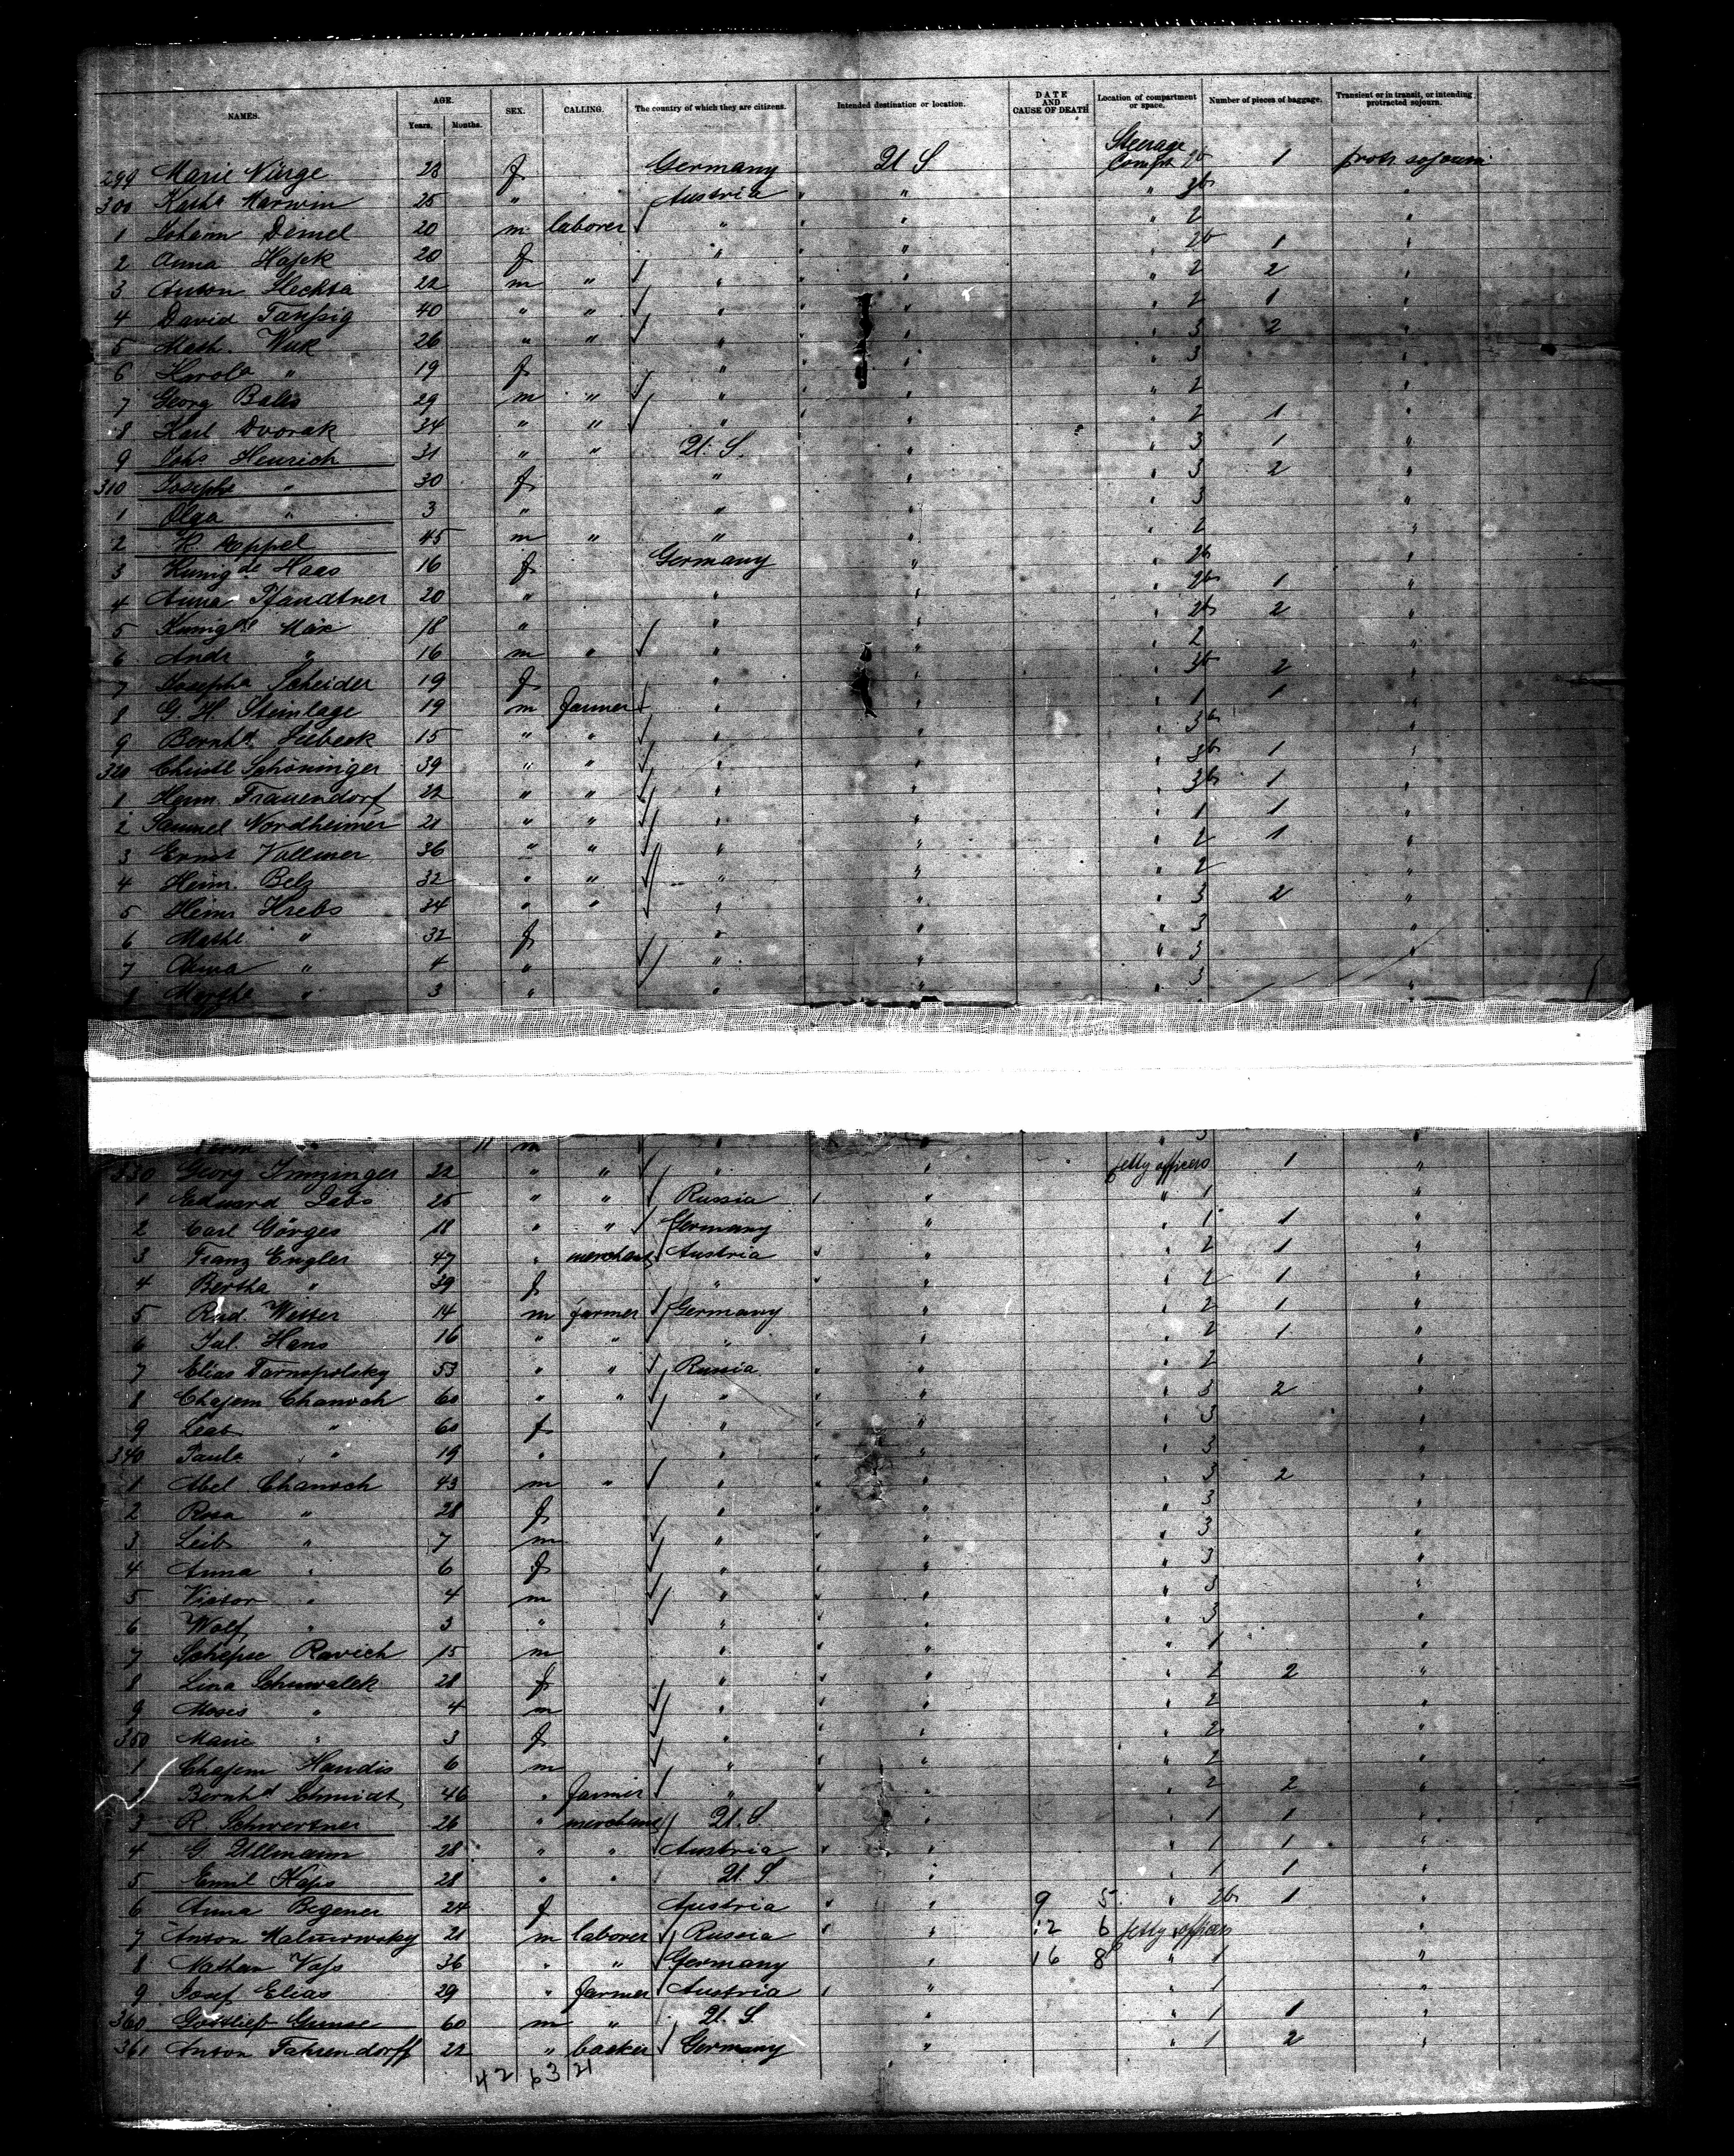 NAMES. AGE. Years. Months. SEX. CALLING. The country of which they are citizens. Intended destination or location. DATE AND CAUSE OF DEATH Location of compartment or space. Number of pieces of baggage. Transient or in transit, or intending protracted sojourn.
Steerage
299 Marie 28 f Germany U S Compt 2b 1 protr sojourn
300 Kath Marwin 25 " Austria " " " 3b "
1 Johann Demel 20 m laborer " " " " 2 "
2 Anna Hajek 20 f " " " " 2b 1 "
3 Anton 22 m " " " " " 2 2 "
4 David Taussig 40 " " " " " " 2 1 "
5 Math. Wuk 26 " " " " " " 3 2 "
6 " 19 f " " " " 3 "
7 Georg 29 m " " " " " 2 "
8 Karl Dvorak 34 " " " " " " 2 1 "
9 Johs Henrich 31 " " U. S. " " 3 1 "
310 Josepha " 30 f " " " 3 2 "
1 Olga " 3 " " " " 3 "
2 K Deppel 45 m " " " " 2 "
3 Kunigde Haas 16 f Germany " " 2b "
4 Anna Pfandtner 20 " " " " 2b 1 "
5 Kunigde 18 " " " " 2b 2 "
6 Andr " 16 m " " " " 2 "
7 Josepha Scheider 19 f " " " 3b 2 "
8 G. H. Steinlage 19 m farmer " " " 1 1 "
9 Bernhd. 15 " " " " " 3b "
320 Christl Schöninger 39 " " " " " 3b 1 "
1 Herm. Frauendorf 22 " " " " " 3b 1 "
2 Samuel Nordheimer 21 " " " " " 1 1 "
3 Ernst Vollmer 36 " " " " " 2 1 "
4 Heinr. Belz 32 " " " " " 2 "
5 Heinr Krebs 34 " " " " " 3 2 "
6 Mathl " 32 f " " " 3 "
7 " 4 " " " " 3 "
8 Martha " 3 " " " " 3 "
11 m " " " 3 "
330 Georg 22 " " " " petty officers 1 "
1 Eduard 25 " " Russia " " " 1 "
2 Carl Görges 18 " " Germany " " 1 1 "
3 Franz Engler 47 " merchant Austria " " " 2 1 "
4 Bertha " 39 f " " " " 2 1 "
5 Rud. Witter 14 m farmer Germany " " 2 1 "
6 Jul. Hans 16 " " " " " 2 1 "
7 Elias Tarnopolsky 53 " " Russia " " " 2 "
8 Chajem Chanoch 60 " " " " " " 3 2 "
9 Leab " 60 f " " " " 3 "
340 Paula " 19 " " " " " 3 "
1 Abel Chanoch 43 m " " " " " 3 2 "
2 Rosa " 28 f " " " " 3 "
3 Leib " 7 m " " " " 3 "
4 Anna " 6 f " " " " 3 "
5 Victor " 4 m " " " " 3 "
6 Wolf " 3 " " " " " 3 "
7 Schepse Ravich 15 m " " " " 1 "
8 Lina Schuwalek 28 f " " " " 2 2 "
9 Moses " 4 m " " " " 2 "
350 Marie " 3 f " " " " 2 "
1 Chajem Handis 6 m " " " " 2 "
2 Bernhd Schmidt 46 " farmer " " " " 2 2 "
3 R. Schwertner 26 " merchant U. S. " " 1 1 "
4 G. Ullmann 28 " " Austria " " " 1 1 "
5 Emil Kaps 28 " " U. S " " 1 1 "
6 Anna Begener 24 f Austria " " 9 5 " 2b 1 "
7 Anton Malinowsky 21 m laborer Russia " " 12 6 petty officers "
8 Nathan Voss 36 " " Germany " 16 8 " 1 "
9 Josef Elias 29 " farmer Austria " " " 1 "
360 Gottlieb Grunse 60 m " U. S. " " 1 1 "
361 Anton Fahrendorff 22 " backer Germany " " 1 2 "
42 63 21